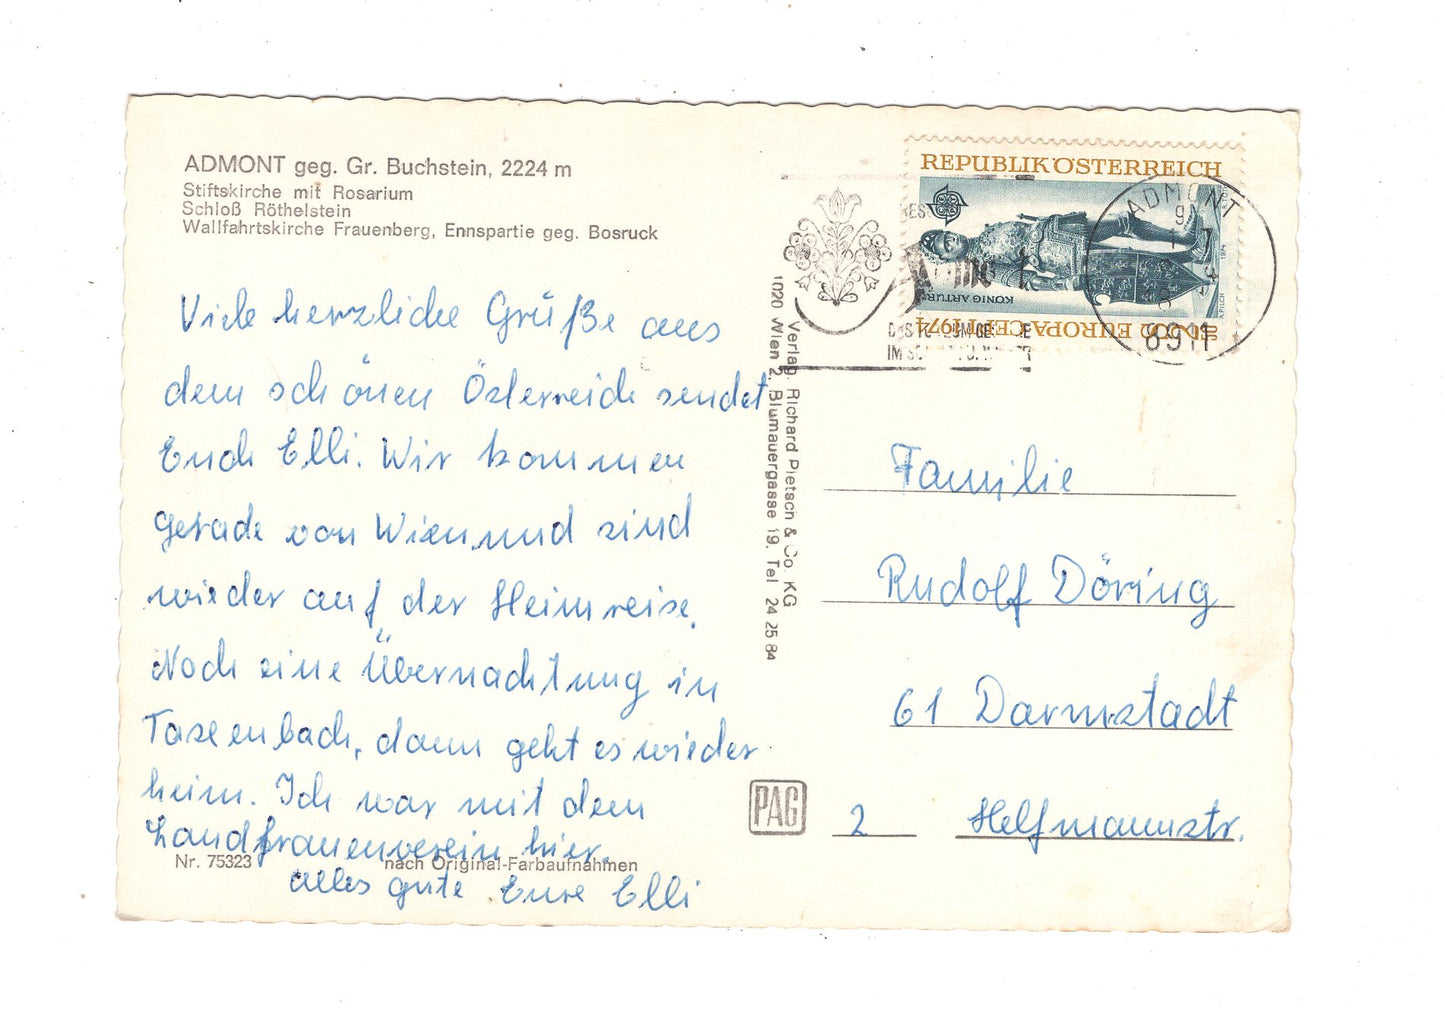 ADMONT geg. Gr. Buchstein, 2224 m
Stiftskirche mit Rosarium
Schloß Röthelstein
Wallfahrtskirche Frauenberg, Ennspartie geg. Bosruck
Viele herzliche Grüße aus
dem schönen Österreich sendet
Euch Elli. Wir kommen
gerade von Wien und sind
wieder auf der Heimreise.
Noch eine Übernachtung in
Taxenbach, dann geht es wieder
heim. Ich war mit dem
Landfrauenverein hier.
Alles gute Eure Elli
Nr. 75323
nach Original-Farbaufnahmen
Verlag: Richard Pietsch & Co. KG
1020 Wien 2, Blumauergasse 19. Tel 24 25 84
PAG
REPUBLIK ÖSTERREICH
KÖNIG ARTUR
EUROPA CEPT 1974
ADMONT
8911
Familie
Rudolf Döring
61 Darmstadt
2 Helfmannstr.